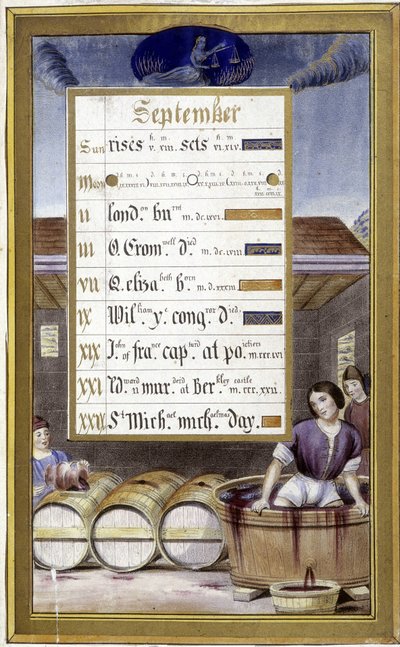 September
Sun rises h. m. v. xiii. sets h. m. vi. xiv.
Moon
II lond.on bu.rnt m.dc.lxvi.
III O. Crom.well d.ied m.dc.lviii
VII Q. eliza.beth b.orn m.d.xxxiii
IX Wil.liam y.e conq.ror d.ied,
XIX John of fra.nce cap.turd at poictiers m.ccc.lvi
XXI Edward ii mur.derd at Ber.kley castle m.ccc.xxvii.
XXIX St Mich.ael mich.aelmas day.